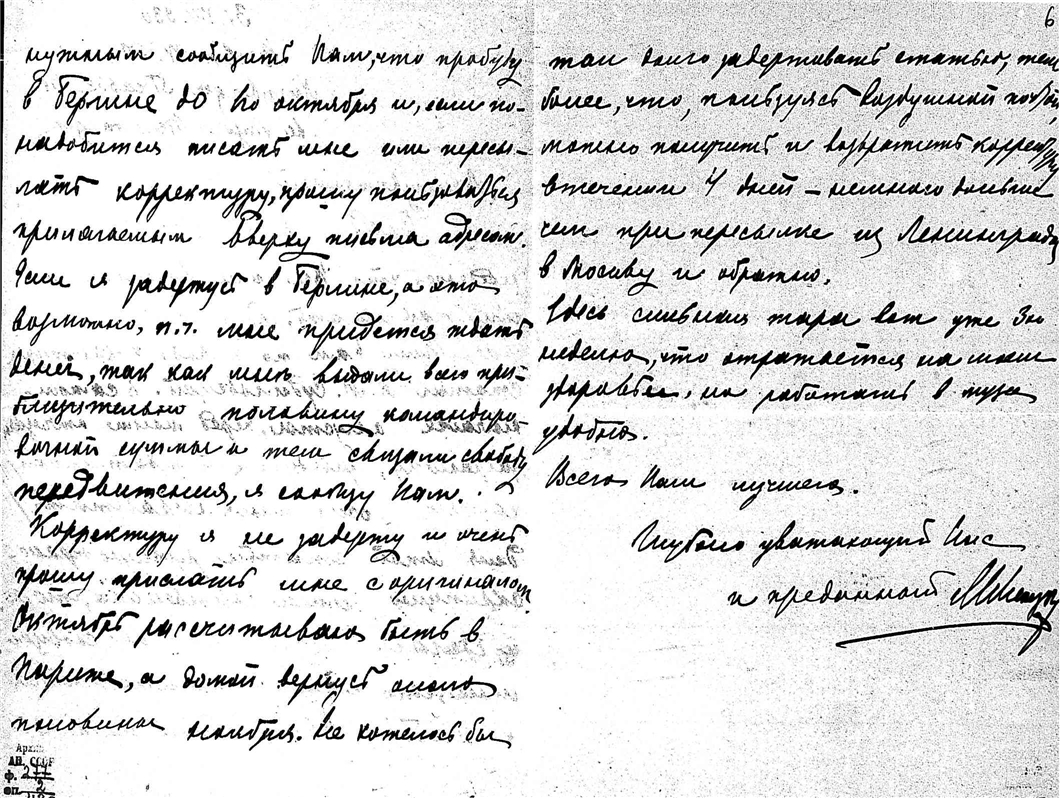 нужным сообщить Вам, что пробуду
в Берлине до 1го октября и, если по-
надобится писать мне или пересы-
лать корректуру, прошу пользоваться
прилагаемым вверху письма адресом.
Если я задержусь в Берлине, а это
возможно, п.т. мне придется ждать
денег, так как мне выдали всего при-
близительно половину командиро
вочной суммы и тем связали свободу
передвижения, я сообщу Вам.
Корректуру я не задержу и очень
прошу прислать мне с оригиналом
Октябрь рассчитываю быть в
Париже, а домой вернусь около
половины ноября. Не хотелось бы
Архив
АН СССР
ф. 277
оп. 2
6
так долго задерживать статью, тем
более, что, пользуясь воздушной почтой,
можно получить и возвратить корректуру
в течении 4 дней – немного дольше
чем при пересылке из Ленинграда
в Москву и обратно.
Здесь сильная жара вот уже 3ю
неделю, что отражается на моем
здоровье, но работать в музе
удобно.
Всего Вам лучшего.
Глубоко уважающий Вас
и преданный